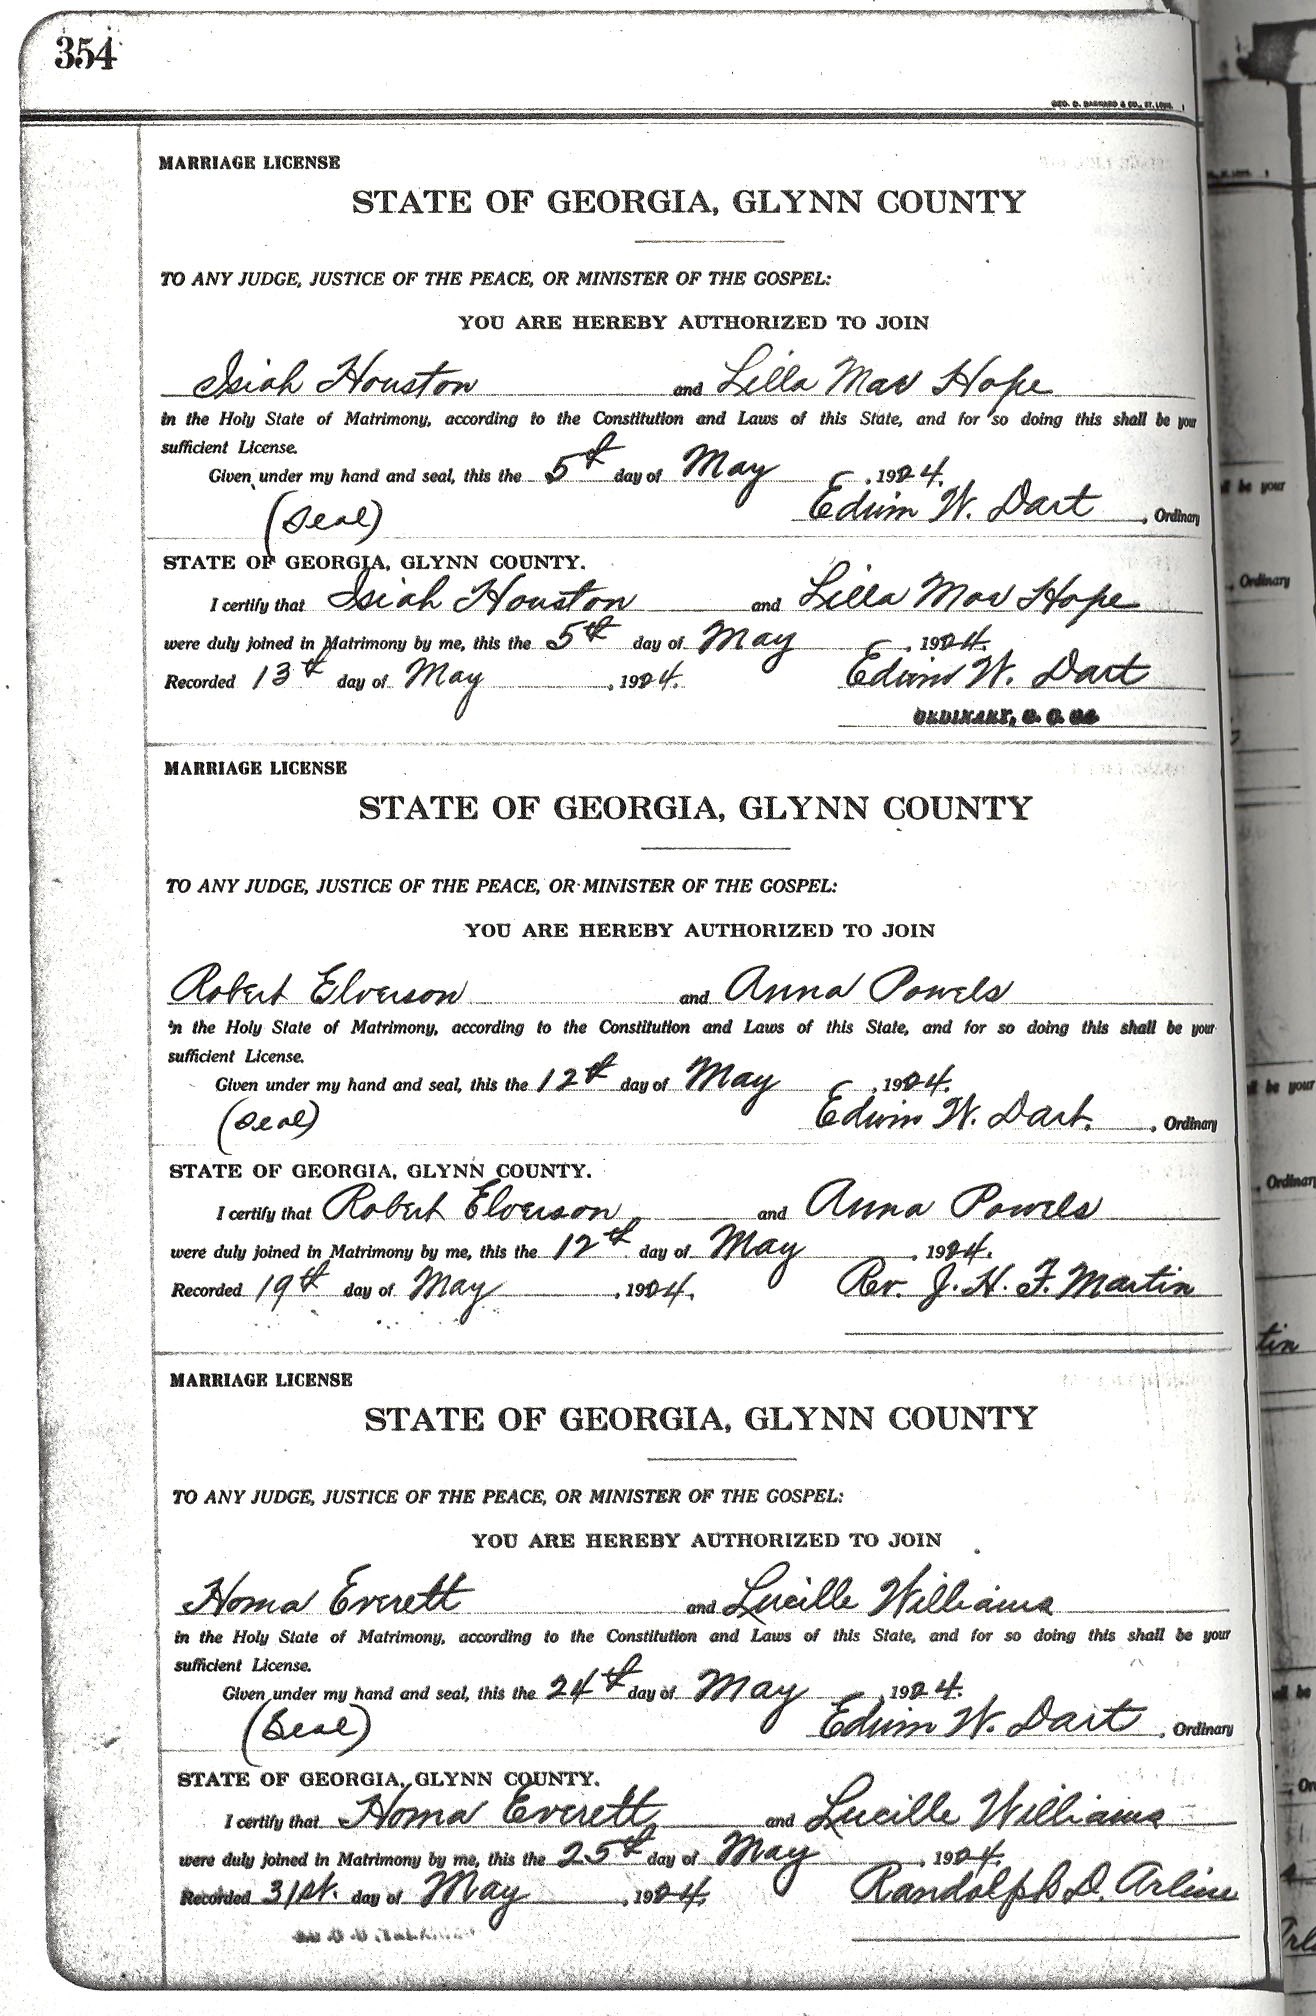 354
GEO. D. BARNARD & CO., ST. LOUIS.
MARRIAGE LICENSE
STATE OF GEORGIA, GLYNN COUNTY
TO ANY JUDGE, JUSTICE OF THE PEACE, OR MINISTER OF THE GOSPEL:
YOU ARE HEREBY AUTHORIZED TO JOIN
Isiah Houston and Lilla Mae Hope
in the Holy State of Matrimony, according to the Constitution and Laws of this State, and for so doing this shall be your
sufficient License.
Given under my hand and seal, this the 5th day of May, 1924.
(Seal) Edwin W. Dart, Ordinary
STATE OF GEORGIA, GLYNN COUNTY.
I certify that Isiah Houston and Lilla Mae Hope
were duly joined in Matrimony by me, this the 5th day of May, 1924.
Recorded 13th day of May, 1924. Edwin W. Dart
ORDINARY, G. C. Ga
MARRIAGE LICENSE
STATE OF GEORGIA, GLYNN COUNTY
TO ANY JUDGE, JUSTICE OF THE PEACE, OR MINISTER OF THE GOSPEL:
YOU ARE HEREBY AUTHORIZED TO JOIN
Robert Elverson and Anna Powels
in the Holy State of Matrimony, according to the Constitution and Laws of this State, and for so doing this shall be your
sufficient License.
Given under my hand and seal, this the 12th day of May, 1924.
(Seal) Edwin W. Dart, Ordinary
STATE OF GEORGIA, GLYNN COUNTY.
I certify that Robert Elverson and Anna Powels
were duly joined in Matrimony by me, this the 12th day of May, 1924.
Recorded 19th day of May, 1924. Rev. J. H. F. Martin
MARRIAGE LICENSE
STATE OF GEORGIA, GLYNN COUNTY
TO ANY JUDGE, JUSTICE OF THE PEACE, OR MINISTER OF THE GOSPEL:
YOU ARE HEREBY AUTHORIZED TO JOIN
Homa Everett and Lucille Williams
in the Holy State of Matrimony, according to the Constitution and Laws of this State, and for so doing this shall be your
sufficient License.
Given under my hand and seal, this the 24th day of May, 1924.
(Seal) Edwin W. Dart, Ordinary
STATE OF GEORGIA, GLYNN COUNTY.
I certify that Homa Everett and Lucille Williams
were duly joined in Matrimony by me, this the 25th day of May, 1924.
Recorded 31st. day of May, 1924. Randolph D. Arline
be your
Ordinary
be your
Ordinary
tin